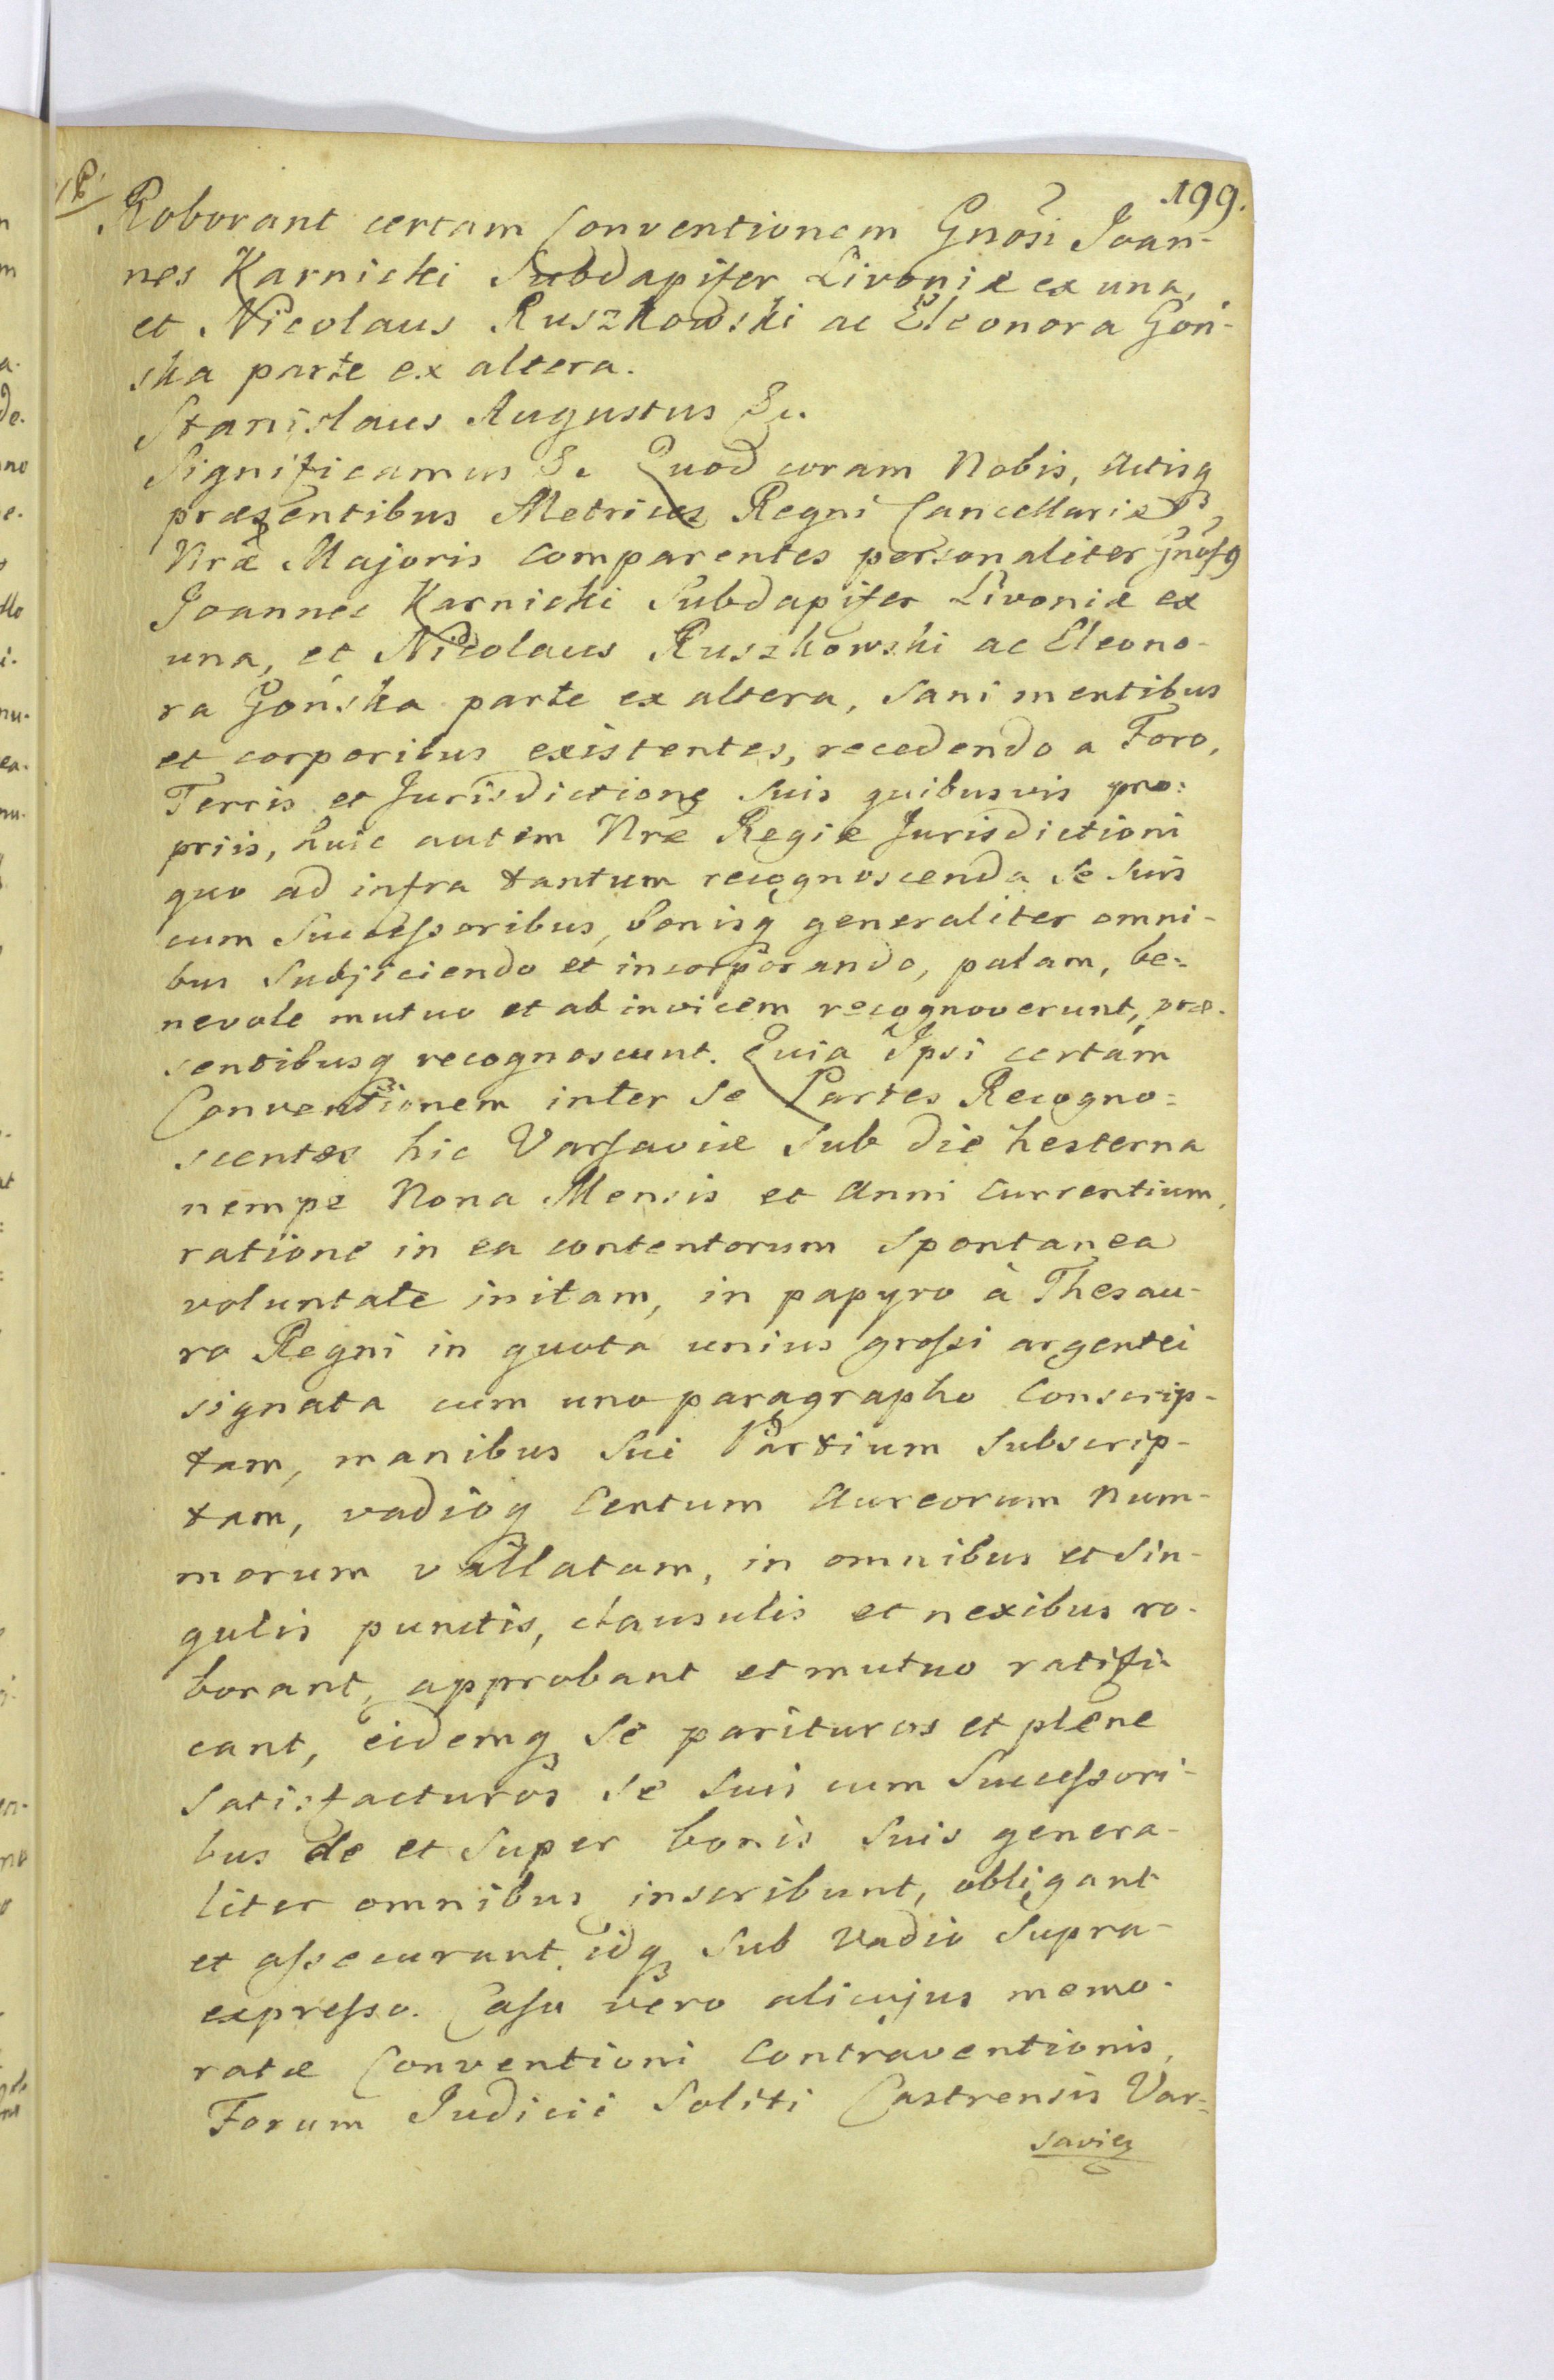 199.
Roborant certam Conventionem Gnosi Joan-
nes Karnicki Subdapifer Livoniæ ex una,
et Nicolaus Ruszkowski ac Eleonora Goń-
ska parte ex altera.
Stanislaus Augustus &c.
Significamus &c Quod coram Nobis, Actisq
præsentibus Metrices Regni Cancellariæ
Nræ Majoris comparentes personaliter Gnosq
Joannes Karnicki Subdapifer Livoniæ ex
una, et Nicolaus Ruszkowski ac Eleono-
ra Gońska parte ex altera, Sani mentibus
et corporibus existentes, recedendo a Foro,
Terris et Jurisdictione Suis quibusvis pro:
priis, huic autem Nræ Regiæ Jurisdictioni
quo ad infra tantum recognoscenda se suis
cum Successoribus, bonisq generaliter omni-
bus Subjiciendo et incorporando, palam, be:
nevole mutuo et ab invicem recognoverunt, præ-
sentibusq recognoscunt. Quia Ipsi certam
Conventionem inter Se Partes Recogno:
scentes hic Varsaviæ Sub die hesterna
nempe Nona Mensis et Anni Currentium,
ratione in ea contentorum Spontanea
voluntate initam, in papyro à Thesau-
ro Regni in quota unius grossi argentei
signata cum uno paragrapho Conscrip-
tam, manibus Sui Partium Subscrip-
tam, vadioq Centum Aureorum Num-
morum vallatam, in omnibus et Sin-
gulis punctis, clausulis et nexibus ro-
borant, approbant et mutuo ratifi-
cant, eidemq Se parituros et plene
Satisfacturos Se Suis cum Successori-
bus de et Super bonis Suis genera-
liter omnibus inscribunt, obligant
et assecurant, idq Sub Vadio Supra-
expresso. Casu vero alicujus memo-
ratæ Conventioni Contraventionis,
Forum Judicii Soliti Castrensis Var-
saviæ